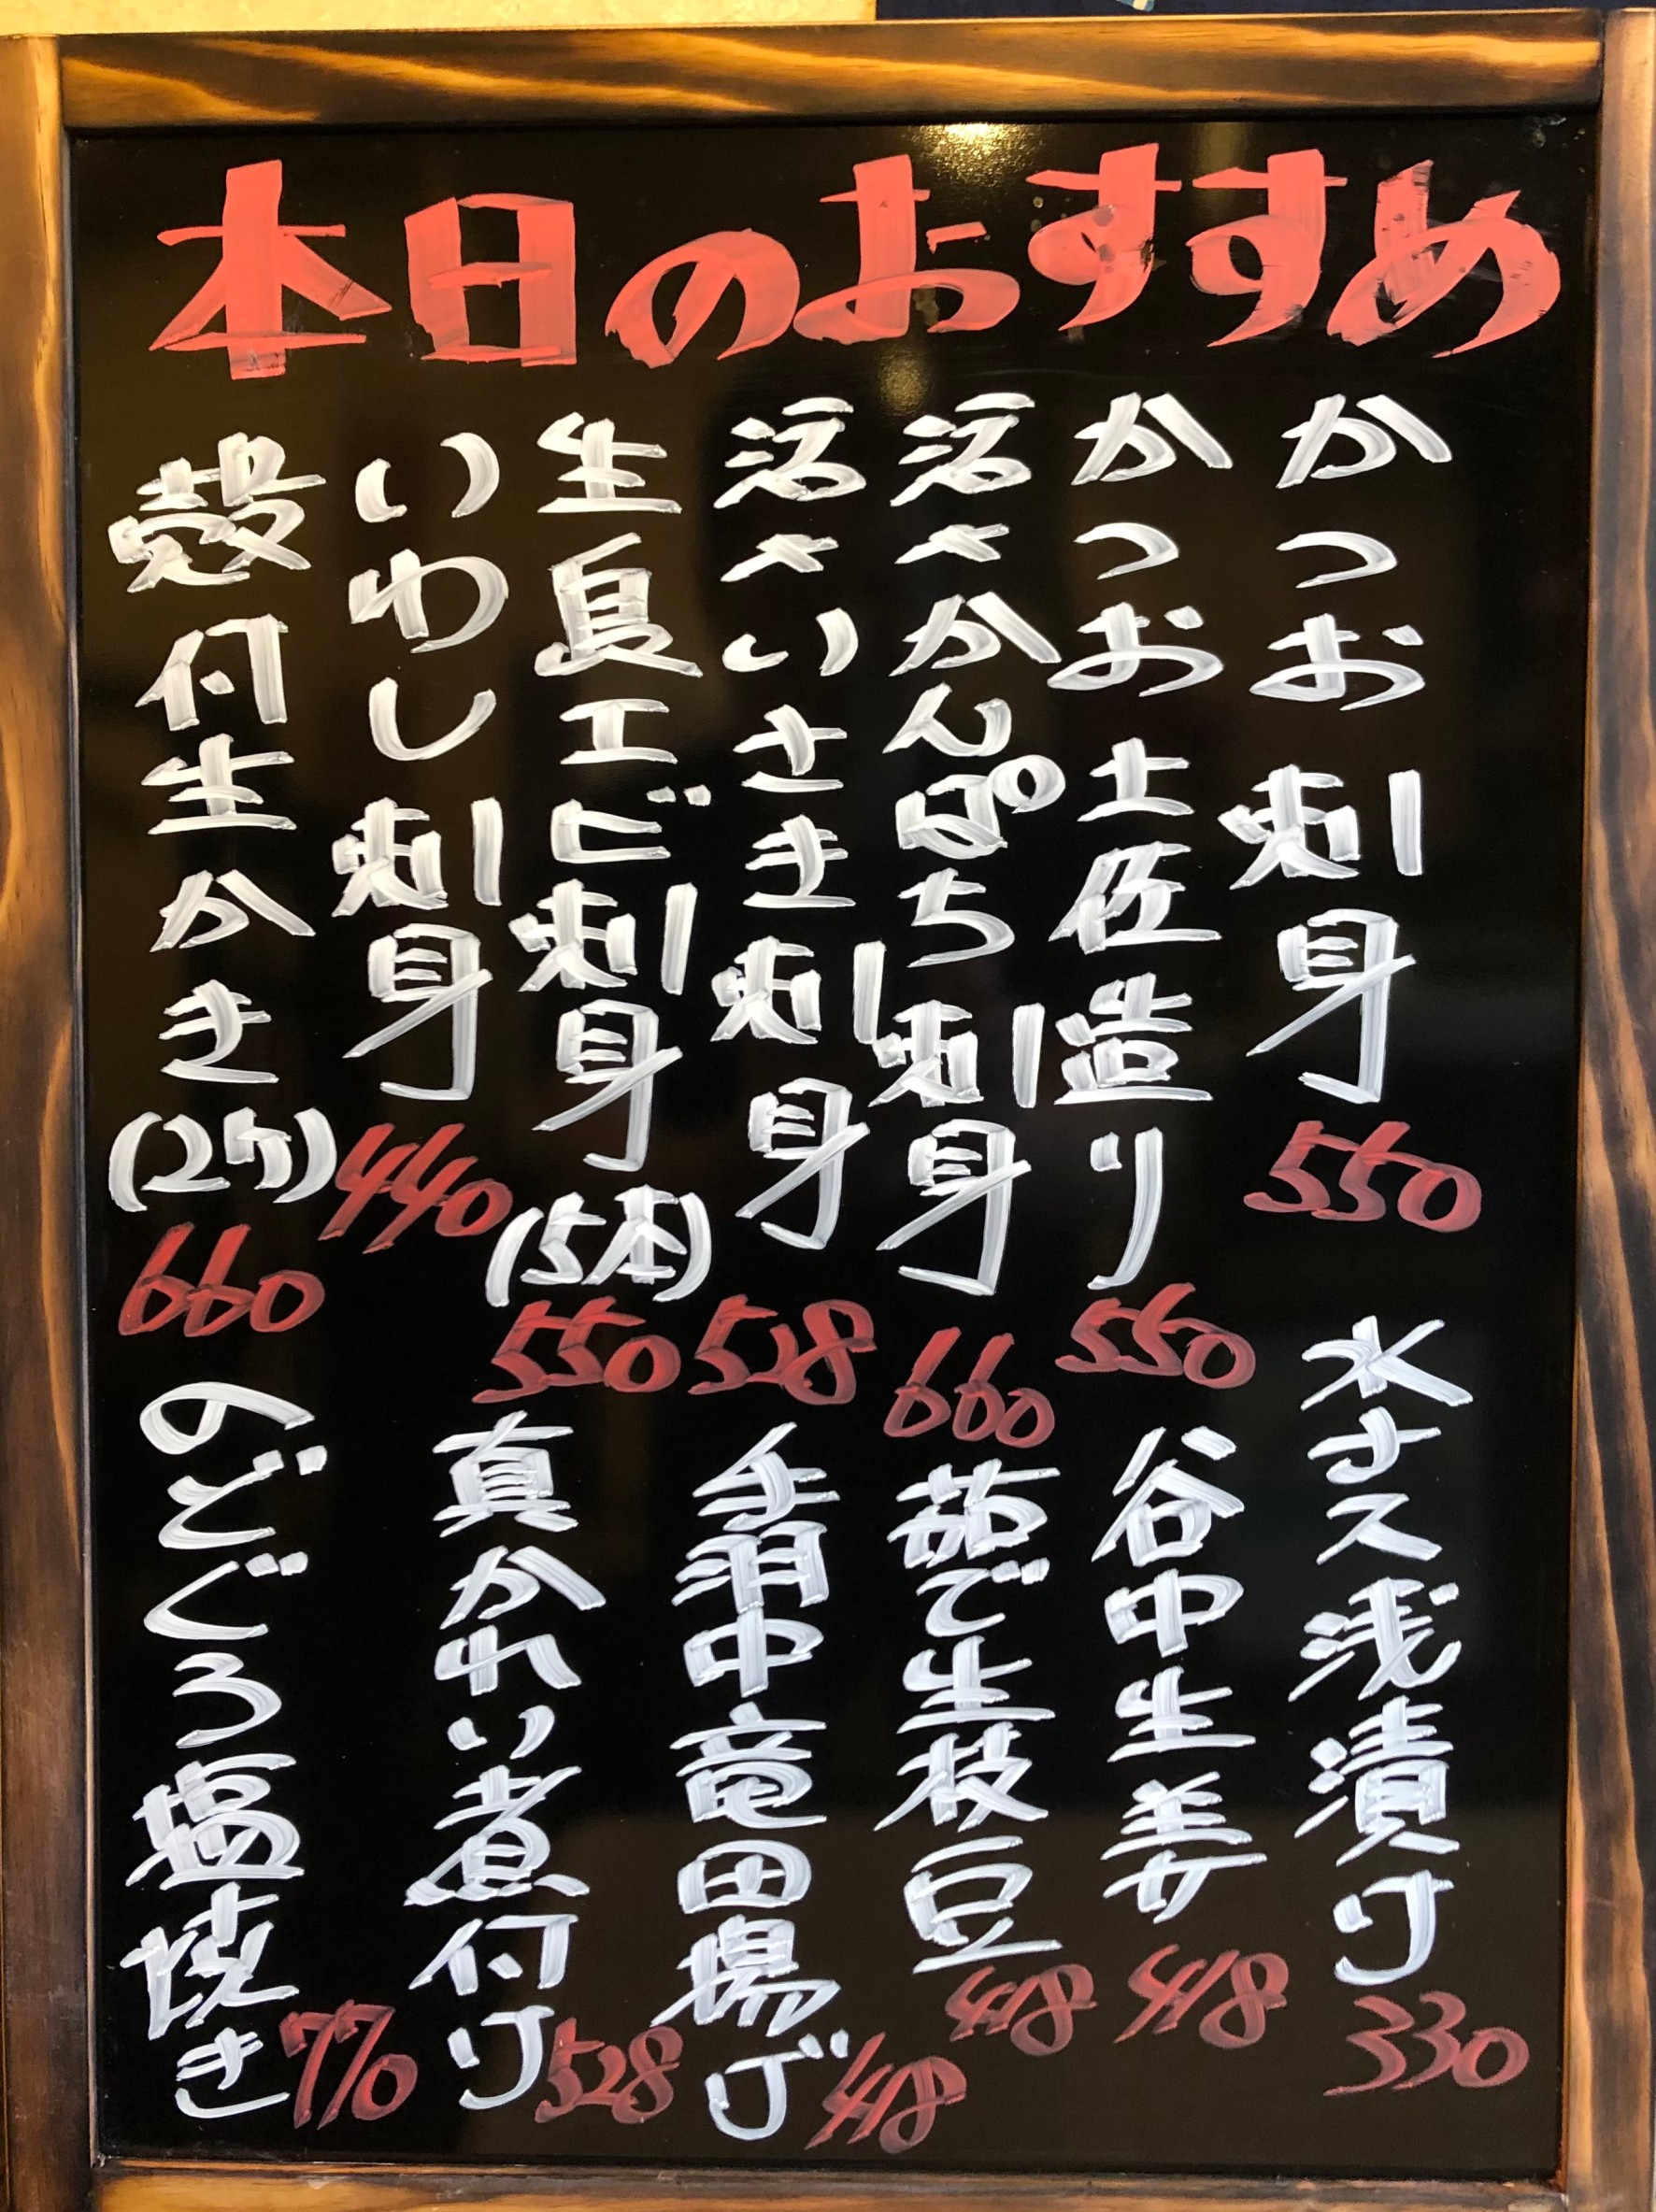 本日のおすすめ
かつお刺身 550
かつお土佐造り 550
活〆かんぱち刺身 660
活〆いさき刺身 528
生エビ刺身(5本) 550
いわし刺身 440
殻付生かき(2ケ) 660
水ナス浅漬け 330
谷中生姜 418
茹で生枝豆 418
手羽中竜田揚げ 418
真かれい煮付け 528
のどぐろ塩焼き 770